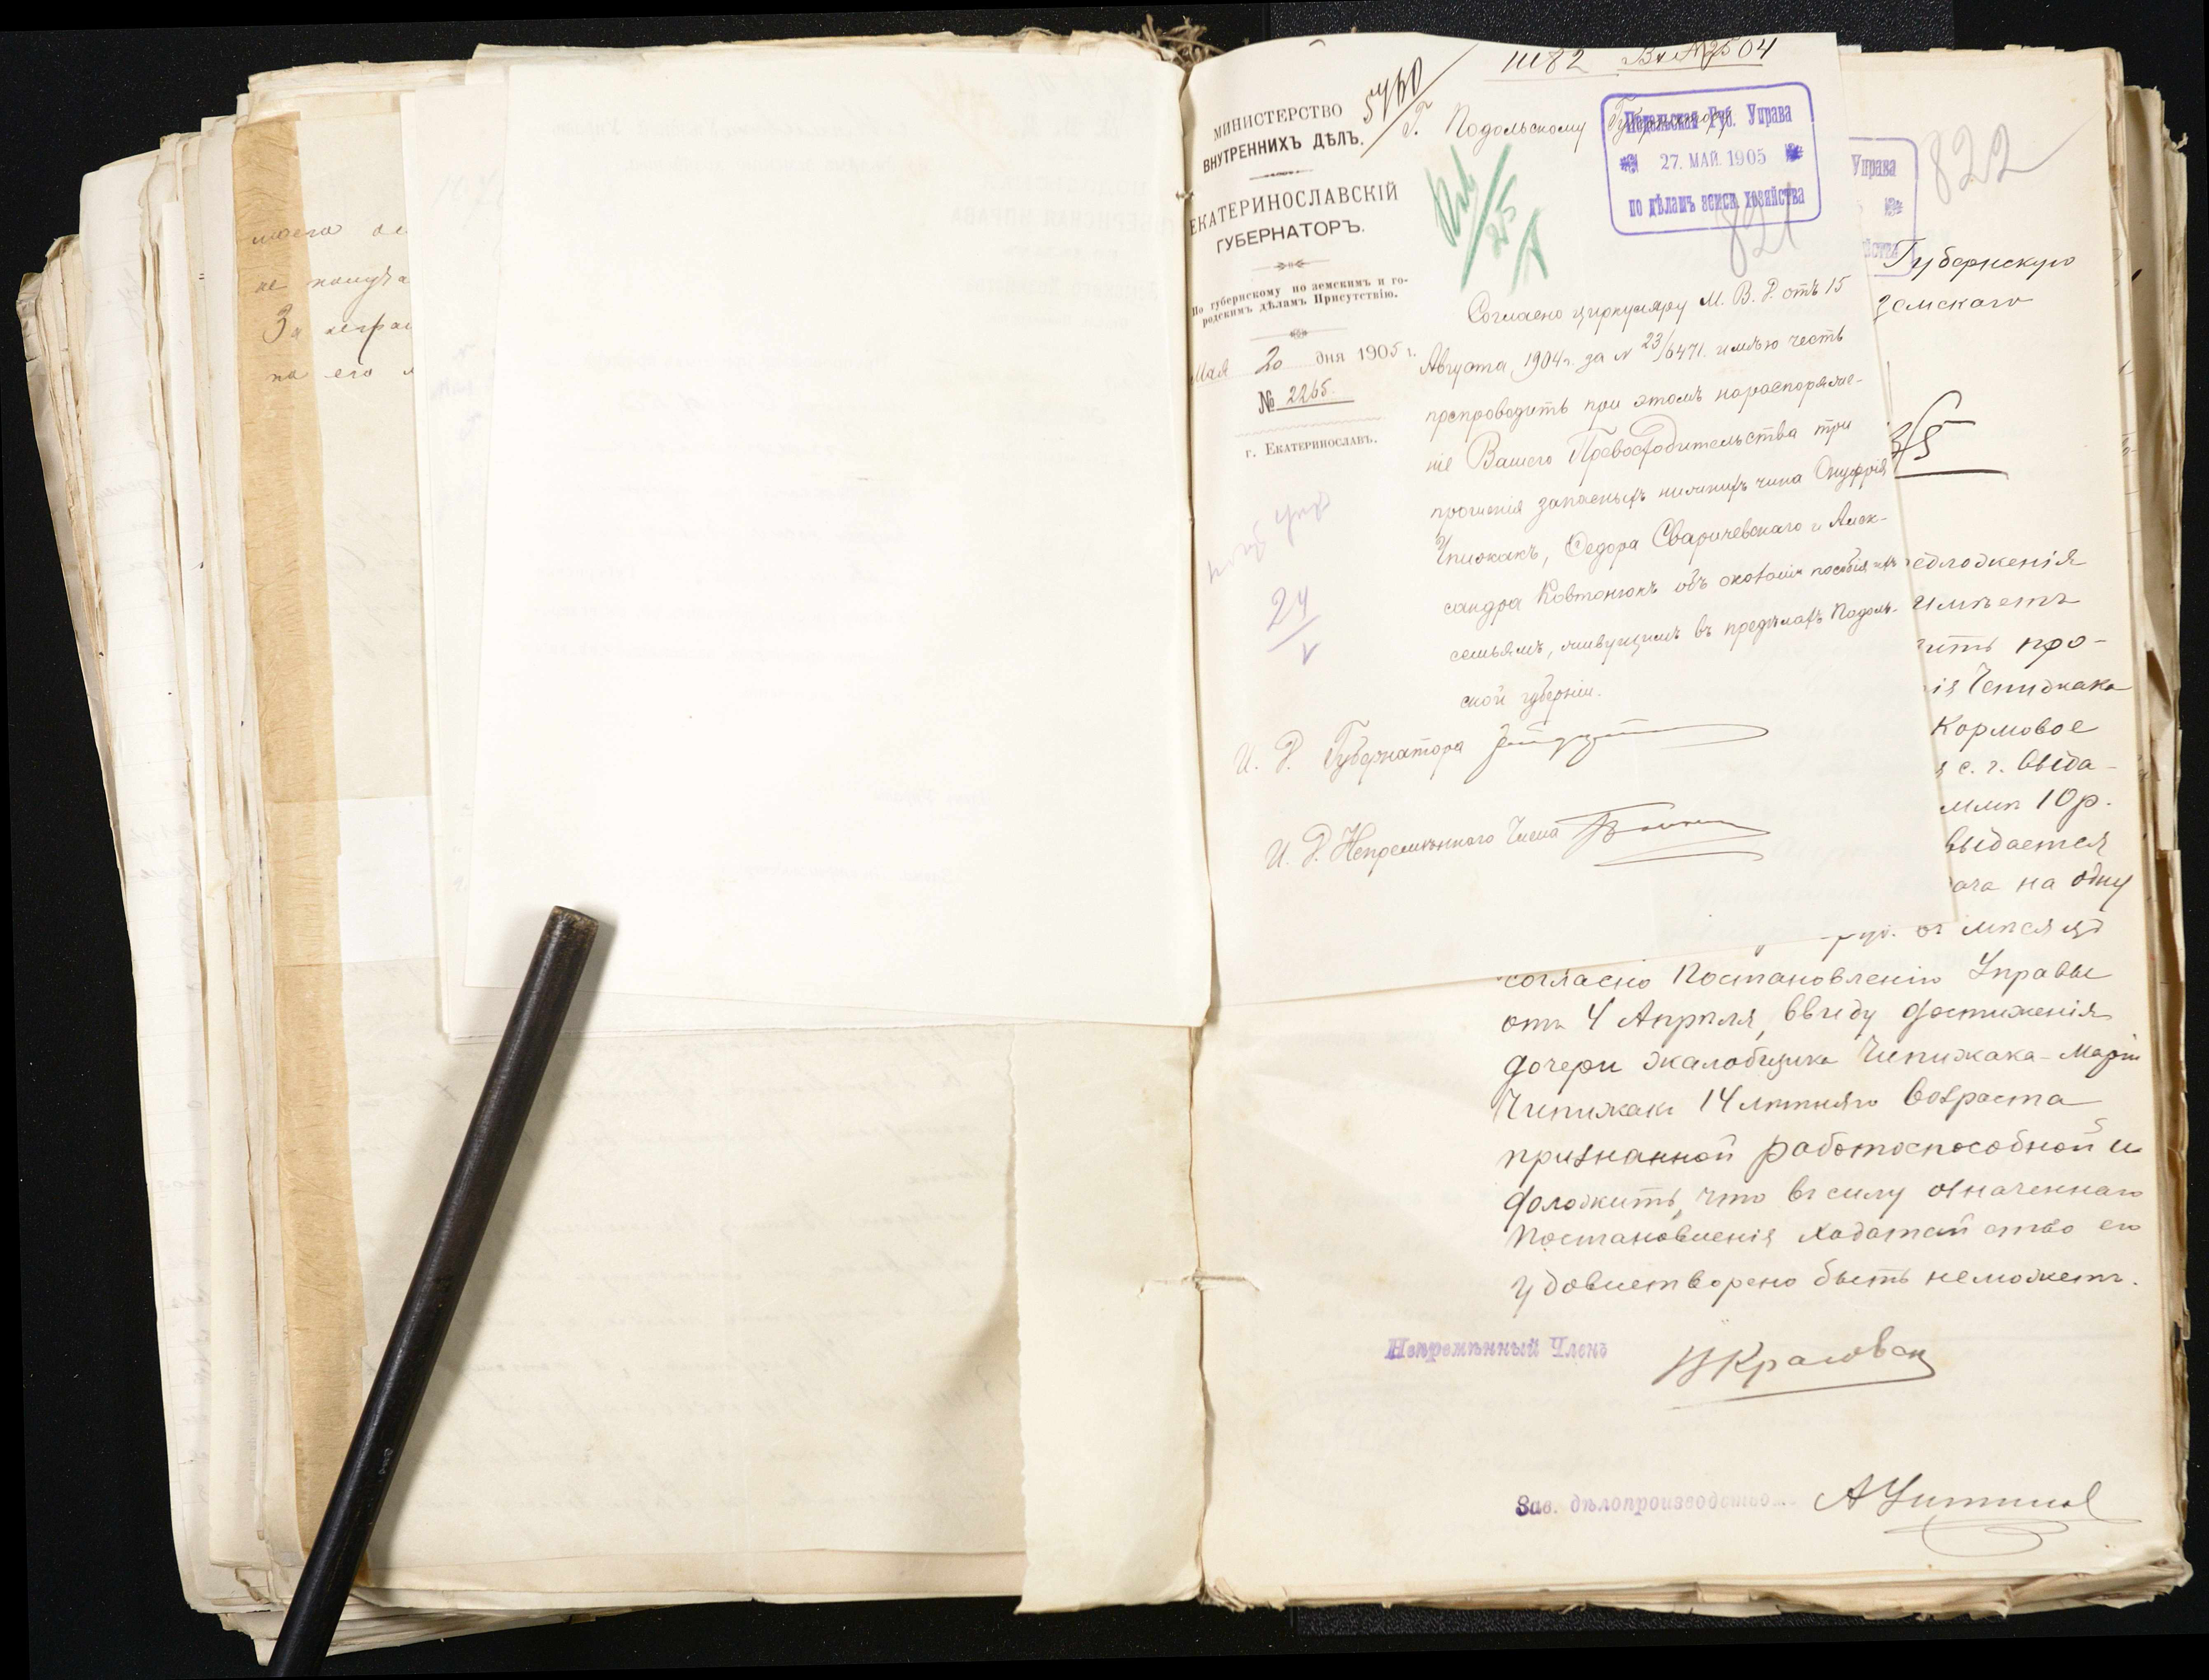 моего
не
За
на его
11182 Вх № 2504
5460
МИНИСТЕРСТВО
ВНУТРЕННИХЪ ДѢЛЪ.
ЕКАТЕРИНОСЛАВСКІЙ
ГУБЕРНАТОРЪ.
По губернскому по земскимъ и го-
родскимъ дѣламъ Присутствію.
Мая 20 дня 1905 г.
№ 2265.
г. Екатеринославъ.
24
V
Г. Подольскому Губернатору
Подольская Губ. Управа
27. МАЙ. 1905
по дѣламъ земск. хозяйства
821
Согласно циркуляру М. В. Д. отъ 15
Августа 1904 г. за № 23/6471. имѣю честь
препроводить при этомъ на распоряже-
ніе Вашего Превосходительства три
прошенія запасныхъ нижнихъ чина Онуфрія
Чпижакъ, Федора Сваричевскаго и Алек-
сандра Ковтонюкъ объ оказаніи пособія ихъ
семьямъ, живущимъ въ предѣлахъ Подоль-
ской губерніи.
И. Д. Губернатора
И. Д. Непремѣннаго Члена
Управа
822
Губернскую
земскаго
едложенія
имѣетъ
ить про-
ія Чепижака
Кормовое
с. г. выда-
ммѣ 10 р.
выдается
ача на одну
мѣсяцъ
согласно Постановленію Управы
отъ 4 Апрѣля, ввиду достиженія
дочери жалобщика Чипижака - Маріи
Чипижакъ 14 лѣтняго возраста
признанной работоспособной и
доложить, что въ силу означеннаго
Постановленія ходатайство его
удовлетворено быть не можетъ.
Непремѣнный Членъ
Зав. дѣлопроизводство